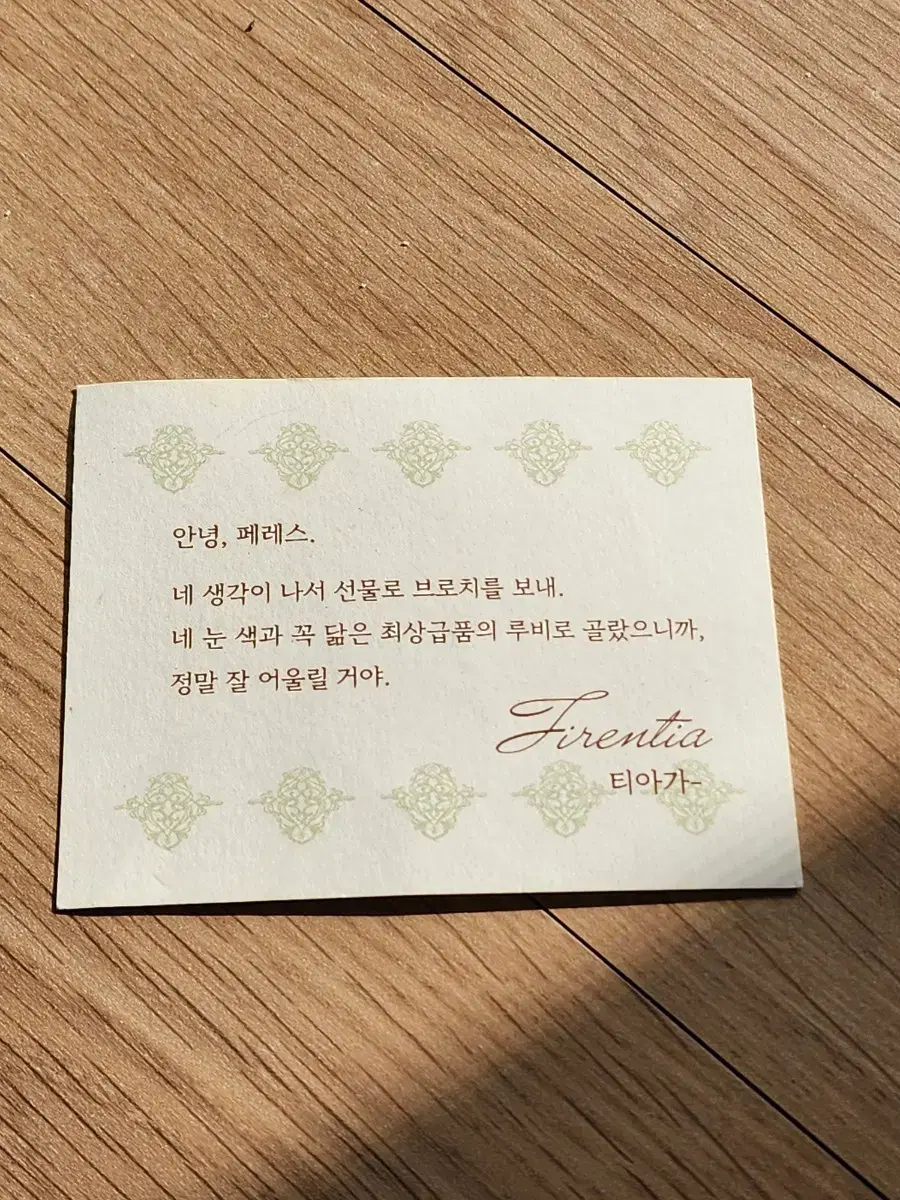 안녕, 페레스.
네 생각이 나서 선물로 브로치를 보내.
네 눈 색과 꼭 닮은 최상급품의 루비로 골랐으니까,
정말 잘 어울릴 거야.
Firentia
티아가-